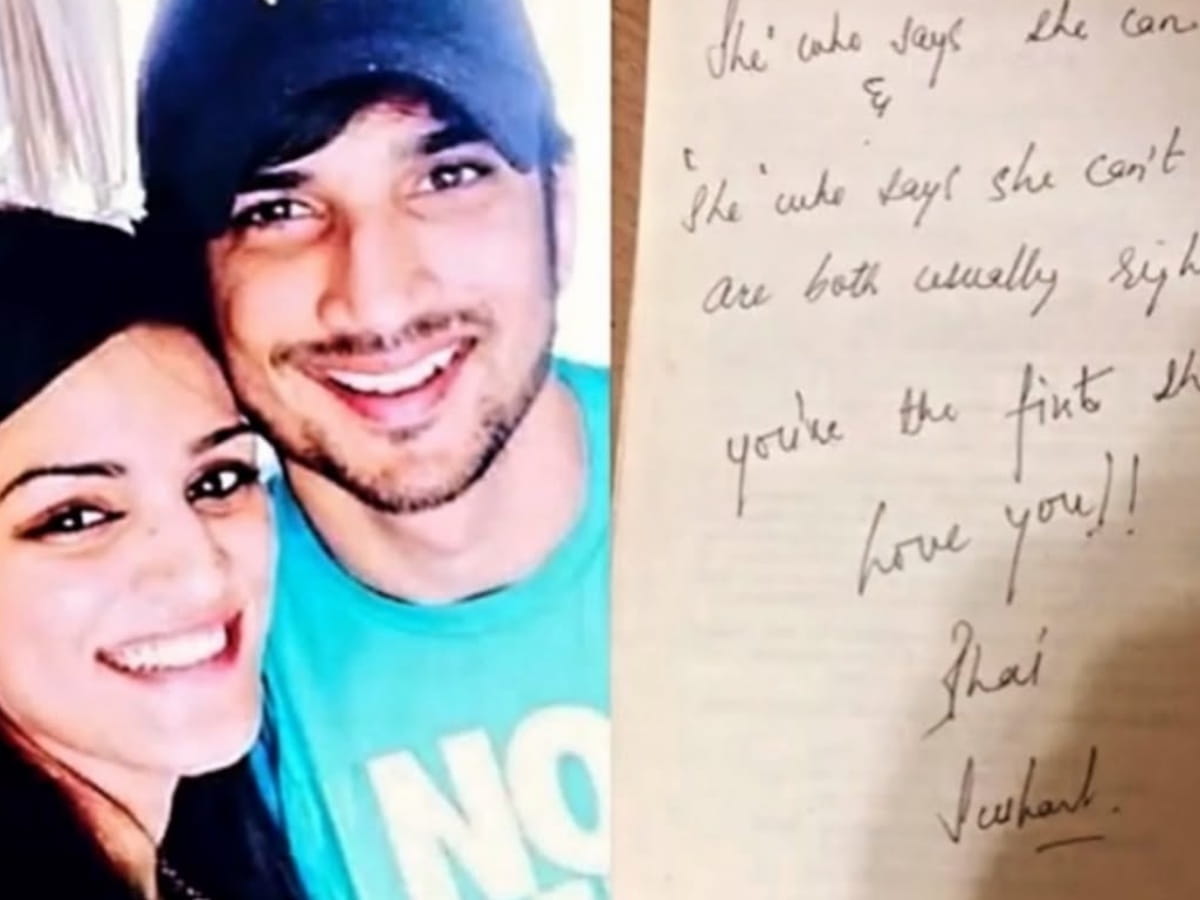 NO
'She' who says she can
&
'She' who says she can't
are both usually righ
you're the first sh
Love you!!
Bhai
Sushant.